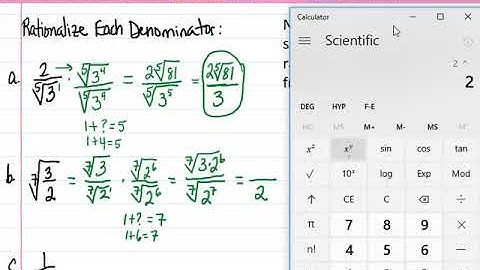 Rationalize Each Denominator:
a. 2/⁵√3¹ · ⁵√3⁴/⁵√3⁴ = 2⁵√81/⁵√3⁵ = 2⁵√81/3
1+?=5
1+4=5
b. ⁷√3/2 = ⁷√3/⁷√2¹ · ⁷√2⁶/⁷√2⁶ = ⁷√3·2⁶/⁷√2⁷ = /2
1+?=7
1+6=7
c. 1
Calculator
Scientific
2 ^
2
DEG HYP F-E
MC MR M+ M- MS M˅
x² xʸ sin cos tan
√ 10ˣ log Exp Mod
↑ CE C ÷
π 7 8 9 ×
n! 4 5 6 −
1 2 3